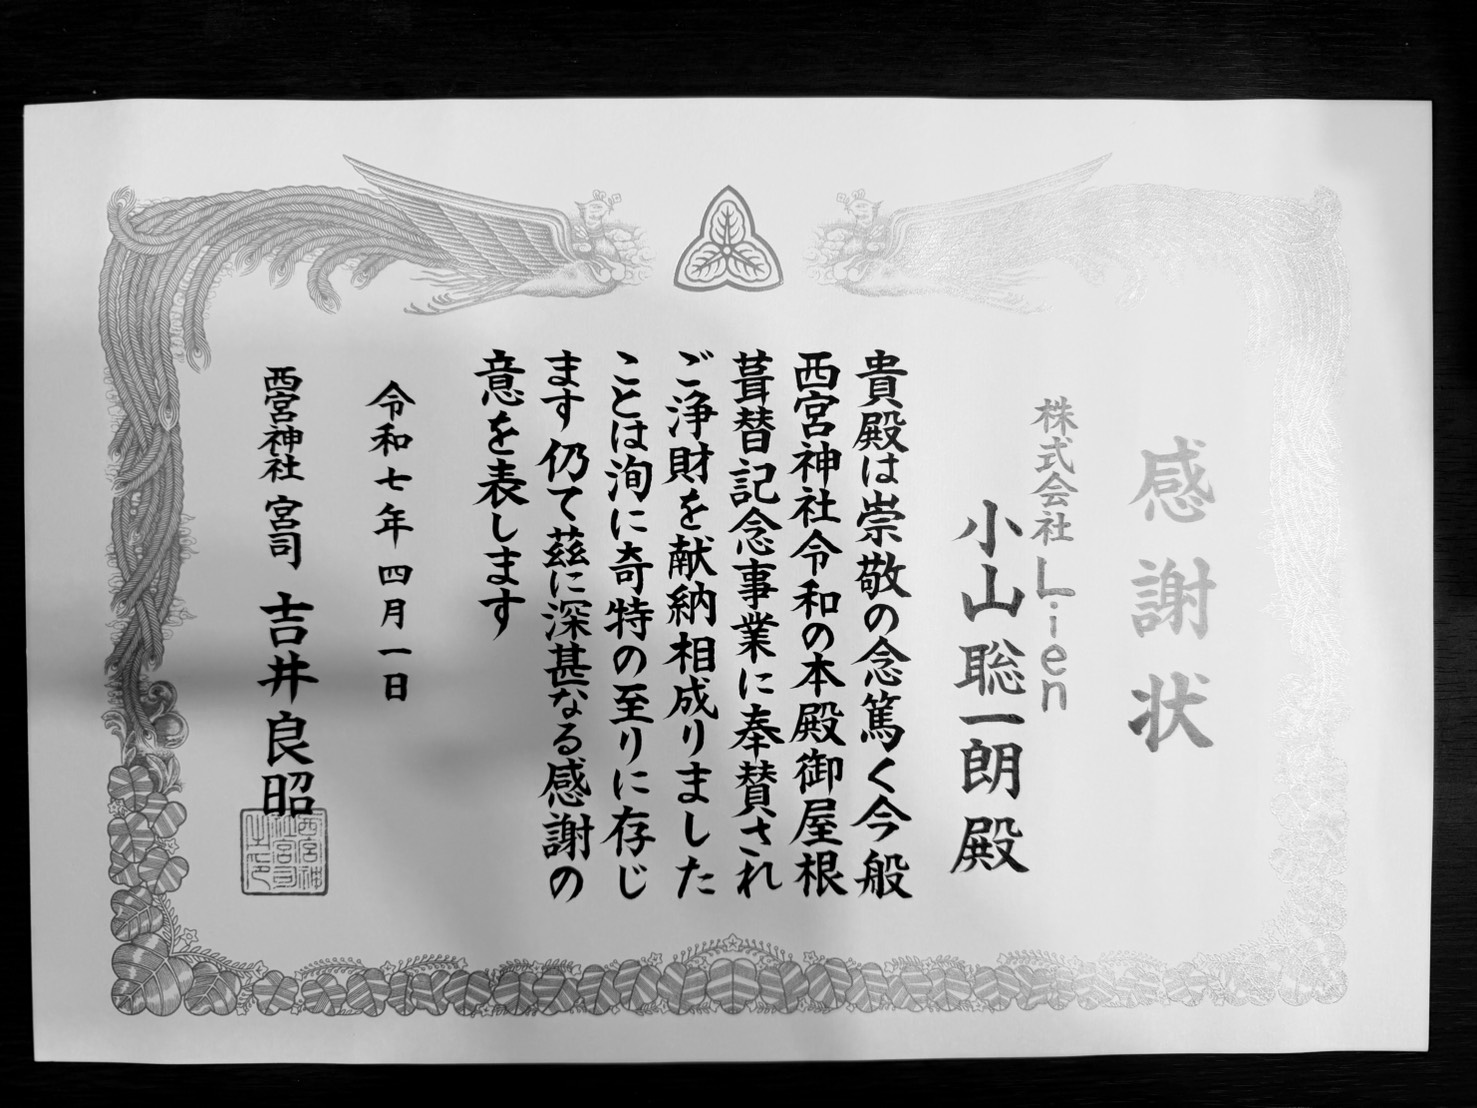 感謝状
株式会社Lien
小山聡一朗殿
貴殿は崇敬の念篤く今般
西宮神社令和の本殿御屋根
葺替記念事業に奉賛され
ご浄財を献納相成りました
ことは洵に奇特の至りに存じ
ます仍て茲に深甚なる感謝の
意を表します
令和七年四月一日
西宮神社 宮司 吉井良昭
西宮神
社宮司
之印